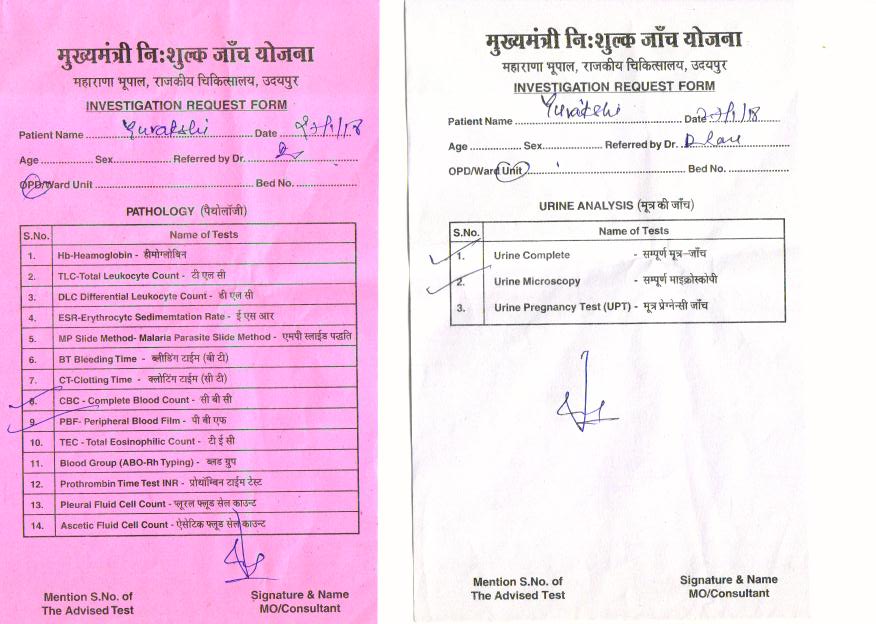 मुख्यमंत्री निःशुल्क जाँच योजना
महाराणा भूपाल, राजकीय चिकित्सालय, उदयपुर
INVESTIGATION REQUEST FORM
Patient Name Yurakshi Date
Age Sex Referred by Dr.
OPD/Ward Unit Bed No.
PATHOLOGY (पैथोलॉजी)
S.No. Name of Tests
1. Hb-Heamoglobin - हीमोग्लोबिन
2. TLC-Total Leukocyte Count - टी एल सी
3. DLC Differential Leukocyte Count - डी एल सी
4. ESR-Erythrocytc Sedimemtation Rate - ई एस आर
5. MP Slide Method- Malaria Parasite Slide Method - एमपी स्लाईड पद्धति
6. BT Bleeding Time - ब्लीडिंग टाईम (बी टी)
7. CT-Clotting Time - क्लोटिंग टाईम (सी टी)
8. CBC - Complete Blood Count - सी बी सी
9. PBF- Peripheral Blood Film - पी बी एफ
10. TEC - Total Eosinophilic Count - टी ई सी
11. Blood Group (ABO-Rh Typing) - ब्लड ग्रुप
12. Prothrombin Time Test INR - प्रोथॉम्बिन टाईम टेस्ट
13. Pleural Fluid Cell Count - प्लूरल फ्लूड सेल काउन्ट
14. Ascetic Fluid Cell Count - ऐसेटिक फ्लूड सेल काउन्ट
Mention S.No. of Signature & Name
The Advised Test MO/Consultant
मुख्यमंत्री निःशुल्क जाँच योजना
महाराणा भूपाल, राजकीय चिकित्सालय, उदयपुर
INVESTIGATION REQUEST FORM
Patient Name Yurakshi Date 27/1/18
Age Sex Referred by Dr.
OPD/Ward Unit Bed No.
URINE ANALYSIS (मूत्र की जाँच)
S.No. Name of Tests
1. Urine Complete - सम्पूर्ण मूत्र-जाँच
2. Urine Microscopy - सम्पूर्ण माइक्रोस्कोपी
3. Urine Pregnancy Test (UPT) - मूत्र प्रेग्नेन्सी जाँच
Mention S.No. of Signature & Name
The Advised Test MO/Consultant